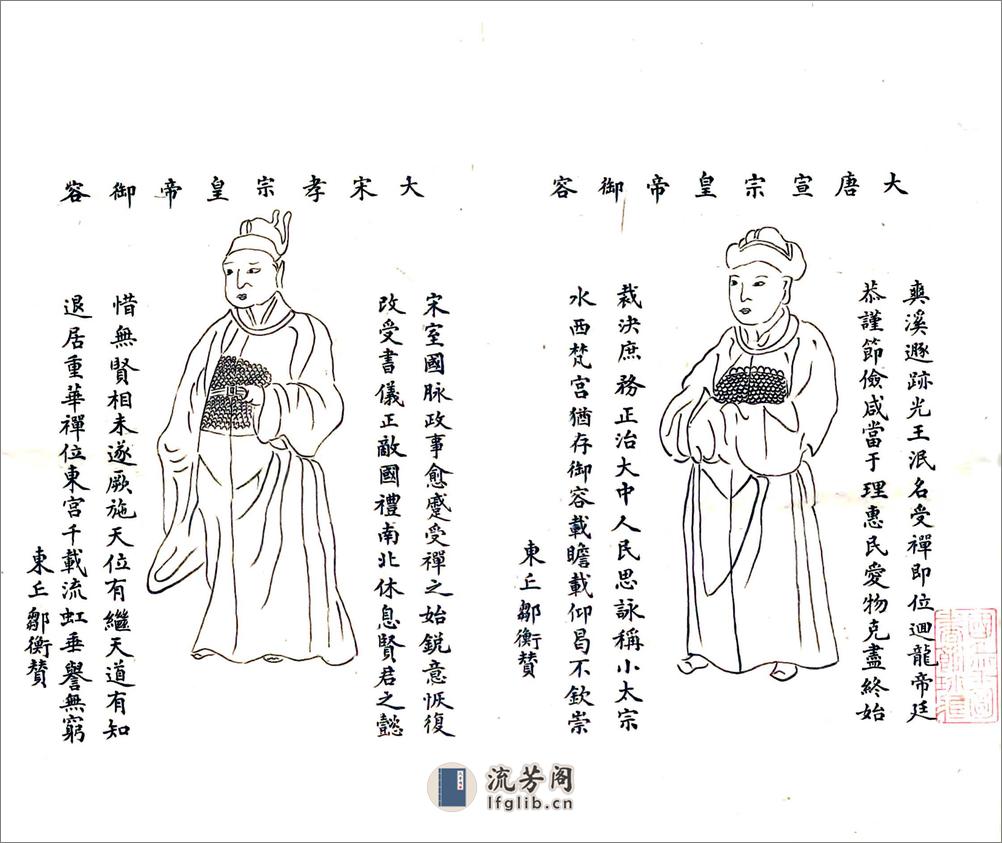 大唐宣宗皇帝御容
爽溪遯跡光王泯名受禪即位迴龍帝廷
恭謹節儉咸當于理惠民愛物克盡終始
裁決庶務正治大中人民思詠稱小太宗
水西梵宮猶存御容載瞻載仰曷不欽崇
東丘鄒衡贊
大宋孝宗皇帝御容
宋室國脉政事愈蹙受禪之始銳意恢復
改受書儀正敵國禮南北休息賢君之懿
惜無賢相未遂厥施天位有繼天道有知
退居重華禪位東宮千載流虹垂譽無窮
東丘鄒衡贊
流芳阁
lfglib.cn